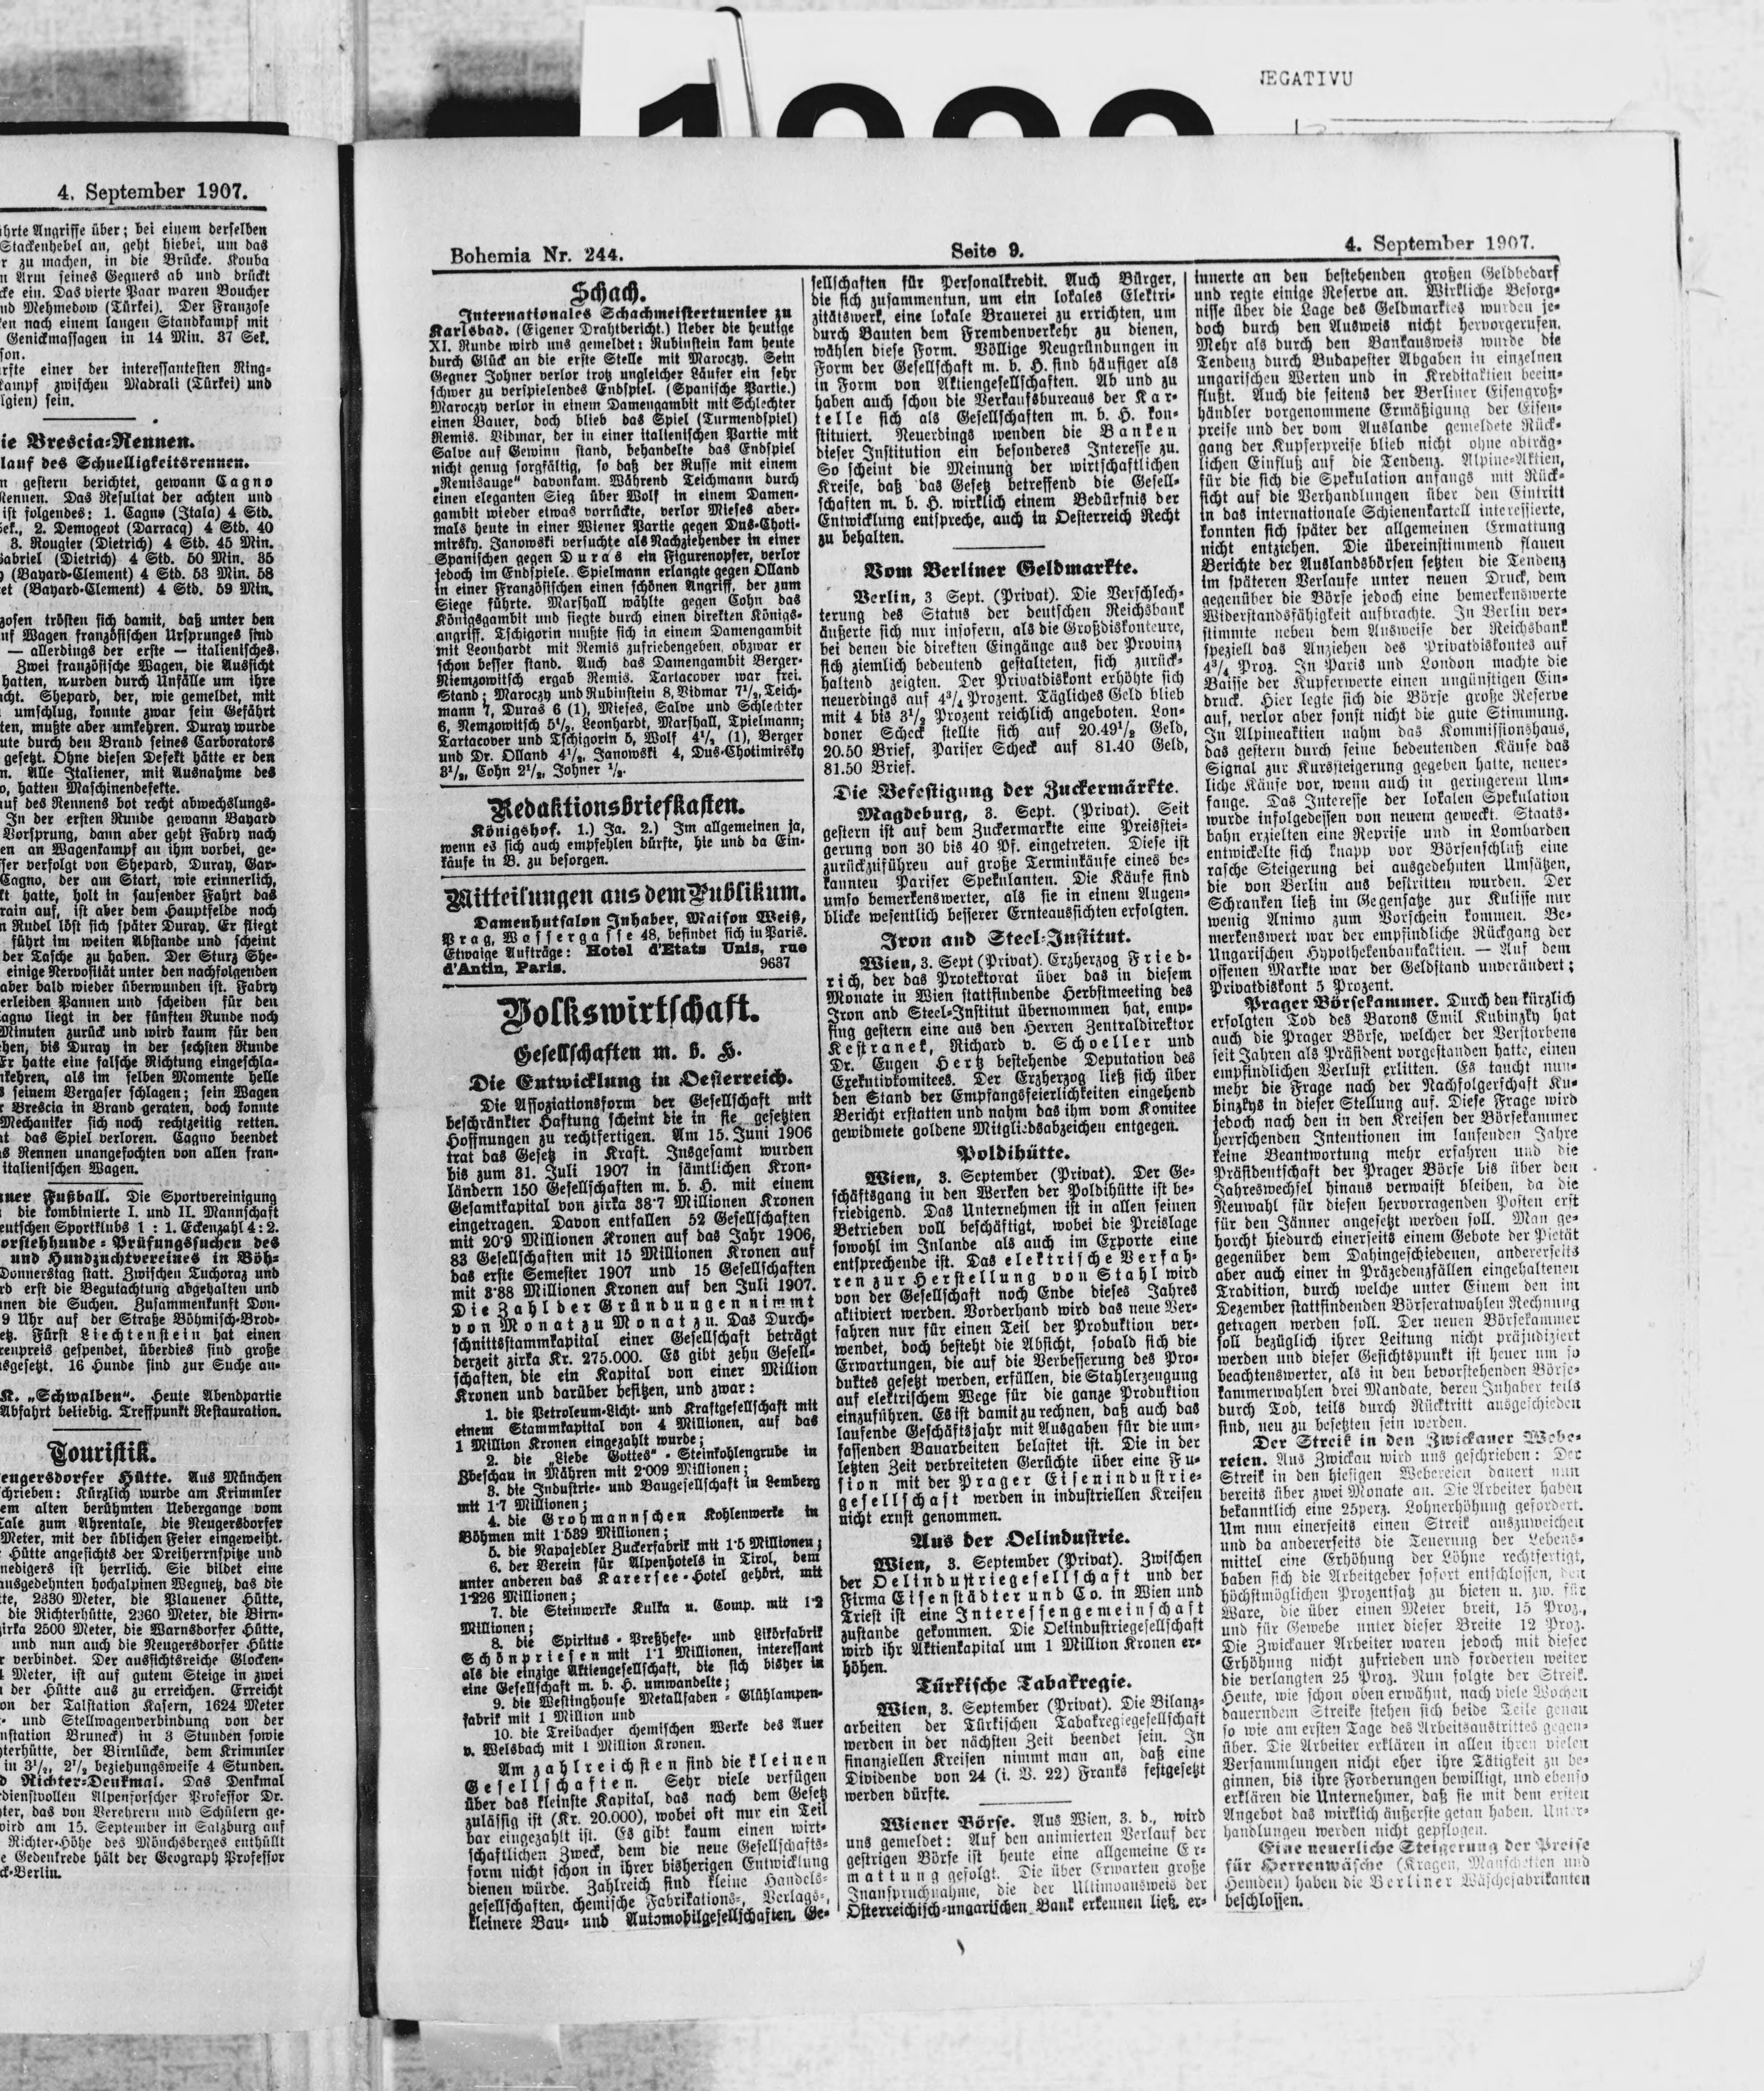 NEGATIVU
4. September 1907.
ührte Angriffe über; bei einem derselben
Stackenhebel an, geht hiebei, um das
r zu machen, in die Brücke. Kouba
n Arm seines Gegners ab und drückt
cke ein. Das vierte Paar waren Boucher
nd Mehmedow (Türkei). Der Franzose
ten nach einem langen Standkampf mit
Genickmassagen in 14 Min. 37 Sek.
son.
ürfte einer der interessantesten Ring-
kampf zwischen Madrali (Türkei) und
lgien) sein.
ie Brescia-Rennen.
lauf des Schnelligkeitsrennen.
n gestern berichtet, gewann Cagno
Rennen. Das Resultat der achten und
ist folgendes: 1. Cagno (Itala) 4 Std.
Sek., 2. Demogeot (Darracq) 4 Std. 40
3. Rougier (Dietrich) 4 Std. 45 Min.
Gabriel (Dietrich) 4 Std. 50 Min. 35
y (Bayard-Clement) 4 Std. 53 Min. 58
et (Bayard-Clement) 4 Std. 59 Min.
zosen trösten sich damit, daß unter den
nf Wagen französischen Ursprunges sind
— allerdings der erste — italienisches.
Zwei französische Wagen, die Aussicht
hatten, wurden durch Unfälle um ihre
cht. Shepard, der, wie gemeldet, mit
umschlug, konnte zwar sein Gefährt
ten, mußte aber umkehren. Duray wurde
ute durch den Brand seines Carborators
gesetzt. Ohne diesen Defekt hätte er den
n. Alle Italiener, mit Ausnahme des
o, hatten Maschinendefekte.
auf des Rennens bot recht abwechslungs-
In der ersten Runde gewann Bayard
Vorsprung, dann aber geht Fabry nach
en an Wagenkampf an ihm vorbei, ge-
ser verfolgt von Shepard, Duray, Gar-
Cagno, der am Start, wie erinnerlich,
kt hatte, holt in sausender Fahrt das
rain auf, ist aber dem Hauptfelde noch
n Rudel löst sich später Duray. Er fliegt
führt im weiten Abstande und scheint
der Tasche zu haben. Der Sturz She-
einige Nervosität unter den nachfolgenden
aber bald wieder überwunden ist. Fabry
erleiden Pannen und scheiden für den
Cagno liegt in der fünften Runde noch
Minuten zurück und wird kaum für den
hen, bis Duray in der sechsten Runde
Er hatte eine falsche Richtung eingeschla-
mkehren, als im selben Momente helle
s seinem Vergaser schlagen; sein Wagen
r Brescia in Brand geraten, doch konnte
Mechaniker sich noch rechtzeitig retten.
at das Spiel verloren. Cagno beendet
s Rennen unangefochten von allen fran-
italienischen Wagen.
ner Fußball. Die Sportvereinigung
die kombinierte I. und II. Mannschaft
eutschen Sportklubs 1 : 1. Eckenzahl 4 : 2.
orstehhunde-Prüfungssuchen des
und Hundzuchtvereines in Böh-
Donnerstag statt. Zwischen Tuchoraz und
rd erst die Begutachtung abgehalten und
nnen die Suchen. Zusammenkunft Don-
9 Uhr auf der Straße Böhmisch-Brod-
etz. Fürst Liechtenstein hat einen
renpreis gespendet, überdies sind große
sgesetzt. 16 Hunde sind zur Suche an-
K. „Schwalben“. Heute Abendpartie
Abfahrt beliebig. Treffpunkt Restauration.
Touristik.
eugersdorfer Hütte. Aus München
chrieben: Kürzlich wurde am Krimmler
em alten berühmten Uebergange vom
tale zum Ahrentale, die Neugersdorfer
Meter, mit der üblichen Feier eingeweiht.
Hütte angesichts der Dreiherrnspitze und
nedigers ist herrlich. Sie bildet eine
ausgedehnten hochalpinen Wegnetz, das die
tte, 2330 Meter, die Plauener Hütte,
die Richterhütte, 2360 Meter, die Birn-
zirka 2500 Meter, die Warnsdorfer Hütte,
und nun auch die Neugersdorfer Hütte
r verbindet. Der aussichtsreiche Glocken-
Meter, ist auf gutem Steige in zwei
der Hütte aus zu erreichen. Erreicht
on der Talstation Kasern, 1624 Meter
- und Stellwagenverbindung von der
nstation Bruneck) in 3 Stunden sowie
hterhütte, der Birnlücke, dem Krimmler
in 3½, 2½ beziehungsweise 4 Stunden.
d Richter-Denkmal. Das Denkmal
rdienstvollen Alpenforscher Professor Dr.
hter, das von Verehrern und Schülern ge-
wird am 15. September in Salzburg auf
Richter-Höhe des Mönchsberges enthüllt
e Gedenkrede hält der Geograph Professor
ck-Berlin.
Bohemia Nr. 244.
Seite 9.
4. September 1907.
Schach.
Internationales Schachmeisterturnier zu
Karlsbad. (Eigener Drahtbericht.) Ueber die heutige
XI. Runde wird uns gemeldet: Rubinstein kam heute
durch Glück an die erste Stelle mit Maroczy. Sein
Gegner Johner verlor trotz ungleicher Läufer ein sehr
schwer zu verspielendes Endspiel. (Spanische Partie.)
Maroczy verlor in einem Damengambit mit Schlechter
einen Bauer, doch blieb das Spiel (Turmendspiel)
Remis. Vidmar, der in einer italienischen Partie mit
Salve auf Gewinn stand, behandelte das Endspiel
nicht genug sorgfältig, so daß der Russe mit einem
„Remisauge“ davonkam. Während Teichmann durch
einen eleganten Sieg über Wolf in einem Damen-
gambit wieder etwas vorrückte, verlor Mieses aber-
mals heute in einer Wiener Partie gegen Dus-Choti-
mirsky. Janowski versuchte als Nachziehender in einer
Spanischen gegen Duras ein Figurenopfer, verlor
jedoch im Endspiele. Spielmann erlangte gegen Olland
in einer Französischen einen schönen Angriff, der zum
Siege führte. Marshall wählte gegen Cohn das
Königsgambit und siegte durch einen direkten Königs-
angriff. Tschigorin mußte sich in einem Damengambit
mit Leonhardt mit Remis zufriedengeben, obzwar er
schon besser stand. Auch das Damengambit Berger-
Niemzowitsch ergab Remis. Tartacover war frei.
Stand: Maroczy und Rubinstein 8, Vidmar 7½, Teich-
mann 7, Duras 6 (1), Mieses, Salve und Schlechter
6, Nemzowitsch 5½, Leonhardt, Marshall, Spielmann;
Tartacover und Tschigorin 5, Wolf 4½ (1), Berger
und Dr. Olland 4½, Janowski 4, Dus-Chotimirsky
3½, Cohn 2½, Johner ½.
Redaktionsbriefkasten.
Königshof. 1.) Ja. 2.) Im allgemeinen ja,
wenn es sich auch empfehlen dürfte, hie und da Ein-
käufe in B. zu besorgen.
Mitteilungen aus dem Publikum.
Damenhutsalon Inhaber, Maison Weiß,
Prag, Wassergasse 48, befindet sich in Paris.
Etwaige Aufträge: Hotel d'Etats Unis, rue
d'Antin, Paris. 9637
Volkswirtschaft.
Gesellschaften m. b. H.
Die Entwicklung in Oesterreich.
Die Assoziationsform der Gesellschaft mit
beschränkter Haftung scheint die in sie gesetzten
Hoffnungen zu rechtfertigen. Am 15. Juni 1906
trat das Gesetz in Kraft. Insgesamt wurden
bis zum 31. Juli 1907 in sämtlichen Kron-
ländern 150 Gesellschaften m. b. H. mit einem
Gesamtkapital von zirka 38·7 Millionen Kronen
eingetragen. Davon entfallen 52 Gesellschaften
mit 20·9 Millionen Kronen auf das Jahr 1906,
83 Gesellschaften mit 15 Millionen Kronen auf
das erste Semester 1907 und 15 Gesellschaften
mit 3·88 Millionen Kronen auf den Juli 1907.
Die Zahl der Gründungen nimmt
von Monat zu Monat zu. Das Durch-
schnittsstammkapital einer Gesellschaft beträgt
derzeit zirka Kr. 275.000. Es gibt zehn Gesell-
schaften, die ein Kapital von einer Million
Kronen und darüber besitzen, und zwar:
1. die Petroleum-Licht- und Kraftgesellschaft mit
einem Stammkapital von 4 Millionen, auf das
1 Million Kronen eingezahlt wurde;
2. die „Liebe Gottes“ - Steinkohlengrube in
Zbeschau in Mähren mit 2·009 Millionen;
3. die Industrie- und Baugesellschaft in Lemberg
mit 1·7 Millionen;
4. die Grohmannschen Kohlenwerke in
Böhmen mit 1·589 Millionen;
5. die Napajedler Zuckerfabrik mit 1·5 Millionen;
6. der Verein für Alpenhotels in Tirol, dem
unter anderen das Karersee-Hotel gehört, mit
1·226 Millionen;
7. die Steinwerke Kulka u. Comp. mit 1·2
Millionen;
8. die Spiritus-Preßhefe- und Likörfabrik
Schönpriesen mit 1·1 Millionen, interessant
als die einzige Aktiengesellschaft, die sich bisher in
eine Gesellschaft m. b. H. umwandelte;
9. die Westinghouse Metallfaden-Glühlampen-
fabrik mit 1 Million und
10. die Treibacher chemischen Werke des Auer
v. Welsbach mit 1 Million Kronen.
Am zahlreichsten sind die kleinen
Gesellschaften. Sehr viele verfügen
über das kleinste Kapital, das nach dem Gesetz
zulässig ist (Kr. 20.000), wobei oft nur ein Teil
bar eingezahlt ist. Es gibt kaum einen wirt-
schaftlichen Zweck, dem die neue Gesellschafts-
form nicht schon in ihrer bisherigen Entwicklung
dienen würde. Zahlreich sind kleine Handels-
gesellschaften, chemische Fabrikations-, Verlags-,
kleinere Bau- und Automobilgesellschaften, Ge-
sellschaften für Personalkredit. Auch Bürger,
die sich zusammentun, um ein lokales Elektri-
zitätswerk, eine lokale Brauerei zu errichten, um
durch Bauten dem Fremdenverkehr zu dienen,
wählen diese Form. Völlige Neugründungen in
Form der Gesellschaft m. b. H. sind häufiger als
in Form von Aktiengesellschaften. Ab und zu
haben auch schon die Verkaufsbureaus der Kar-
telle sich als Gesellschaften m. b. H. kon-
stituiert. Neuerdings wenden die Banken
dieser Institution ein besonderes Interesse zu.
So scheint die Meinung der wirtschaftlichen
Kreise, daß das Gesetz betreffend die Gesell-
schaften m. b. H. wirklich einem Bedürfnis der
Entwicklung entspreche, auch in Oesterreich Recht
zu behalten.
Vom Berliner Geldmarkte.
Berlin, 3 Sept. (Privat). Die Verschlech-
terung des Status der deutschen Reichsbank
äußerte sich nur insofern, als die Großdiskonteure,
bei denen die direkten Eingänge aus der Provinz
sich ziemlich bedeutend gestalteten, sich zurück-
haltend zeigten. Der Privatdiskont erhöhte sich
neuerdings auf 4¾ Prozent. Tägliches Geld blieb
mit 4 bis 3½ Prozent reichlich angeboten. Lon-
doner Scheck stellte sich auf 20.49½ Geld,
20.50 Brief, Pariser Scheck auf 81.40 Geld,
81.50 Brief.
Die Befestigung der Zuckermärkte.
Magdeburg, 3. Sept. (Privat). Seit
gestern ist auf dem Zuckermarkte eine Preisstei-
gerung von 30 bis 40 Pf. eingetreten. Diese ist
zurückzuführen auf große Terminkäufe eines be-
kannten Pariser Spekulanten. Die Käufe sind
umso bemerkenswerter, als sie in einem Augen-
blicke wesentlich besserer Ernteaussichten erfolgten.
Iron and Steel-Institut.
Wien, 3. Sept (Privat). Erzherzog Fried-
rich, der das Protektorat über das in diesem
Monate in Wien stattfindende Herbstmeeting des
Iron and Steel-Institut übernommen hat, emp-
fing gestern eine aus den Herren Zentraldirektor
Kestranek, Richard v. Schoeller und
Dr. Eugen Hertz bestehende Deputation des
Exekutivkomitees. Der Erzherzog ließ sich über
den Stand der Empfangsfeierlichkeiten eingehend
Bericht erstatten und nahm das ihm vom Komitee
gewidmete goldene Mitgliedsabzeichen entgegen.
Poldihütte.
Wien, 3. September (Privat). Der Ge-
schäftsgang in den Werken der Poldihütte ist be-
friedigend. Das Unternehmen ist in allen seinen
Betrieben voll beschäftigt, wobei die Preislage
sowohl im Inlande als auch im Exporte eine
entsprechende ist. Das elektrische Verfah-
ren zur Herstellung von Stahl wird
von der Gesellschaft noch Ende dieses Jahres
aktiviert werden. Vorderhand wird das neue Ver-
fahren nur für einen Teil der Produktion ver-
wendet, doch besteht die Absicht, sobald sich die
Erwartungen, die auf die Verbesserung des Pro-
duktes gesetzt werden, erfüllen, die Stahlerzeugung
auf elektrischem Wege für die ganze Produktion
einzuführen. Es ist damit zu rechnen, daß auch das
laufende Geschäftsjahr mit Ausgaben für die um-
fassenden Bauarbeiten belastet ist. Die in der
letzten Zeit verbreiteten Gerüchte über eine Fu-
sion mit der Prager Eisenindustrie-
gesellschaft werden in industriellen Kreisen
nicht ernst genommen.
Aus der Oelindustrie.
Wien, 3. September (Privat). Zwischen
der Oelindustriegesellschaft und der
Firma Eisenstädter und Co. in Wien und
Triest ist eine Interessengemeinschaft
zustande gekommen. Die Oelindustriegesellschaft
wird ihr Aktienkapital um 1 Million Kronen er-
höhen.
Türkische Tabakregie.
Wien, 3. September (Privat). Die Bilanz-
arbeiten der Türkischen Tabakregiegesellschaft
werden in der nächsten Zeit beendet sein. In
finanziellen Kreisen nimmt man an, daß eine
Dividende von 24 (i. V. 22) Franks festgesetzt
werden dürfte.
Wiener Börse. Aus Wien, 3. d., wird
uns gemeldet: Auf den animierten Verlauf der
gestrigen Börse ist heute eine allgemeine Er-
mattung gefolgt. Die über Erwarten große
Inanspruchnahme, die der Ultimoausweis der
Österreichisch-ungarischen Bank erkennen ließ, er-
innerte an den bestehenden großen Geldbedarf
und regte einige Reserve an. Wirkliche Besorg-
nisse über die Lage des Geldmarktes wurden je-
doch durch den Ausweis nicht hervorgerufen.
Mehr als durch den Bankausweis wurde die
Tendenz durch Budapester Abgaben in einzelnen
ungarischen Werten und in Kreditaktien beein-
flußt. Auch die seitens der Berliner Eisengroß-
händler vorgenommene Ermäßigung der Eisen-
preise und der vom Auslande gemeldete Rück-
gang der Kupferpreise blieb nicht ohne abträg-
lichen Einfluß auf die Tendenz. Alpine-Aktien,
für die sich die Spekulation anfangs mit Rück-
sicht auf die Verhandlungen über den Eintritt
in das internationale Schienenkartell interessierte,
konnten sich später der allgemeinen Ermattung
nicht entziehen. Die übereinstimmend flauen
Berichte der Auslandsbörsen setzten die Tendenz
im späteren Verlaufe unter neuen Druck, dem
gegenüber die Börse jedoch eine bemerkenswerte
Widerstandsfähigkeit aufbrachte. In Berlin ver-
stimmte neben dem Ausweise der Reichsbank
speziell das Anziehen des Privatdiskontes auf
4¾ Proz. In Paris und London machte die
Baisse der Kupferwerte einen ungünstigen Ein-
druck. Hier legte sich die Börse große Reserve
auf, verlor aber sonst nicht die gute Stimmung.
In Alpineaktien nahm das Kommissionshaus,
das gestern durch seine bedeutenden Käufe das
Signal zur Kurssteigerung gegeben hatte, neuer-
liche Käufe vor, wenn auch in geringerem Um-
fange. Das Interesse der lokalen Spekulation
wurde infolgedessen von neuem geweckt. Staats-
bahn erzielten eine Reprise und in Lombarden
entwickelte sich knapp vor Börsenschluß eine
rasche Steigerung bei ausgedehnten Umsätzen,
die von Berlin aus bestritten wurden. Der
Schranken ließ im Gegensatze zur Kulisse nur
wenig Animo zum Vorschein kommen. Be-
merkenswert war der empfindliche Rückgang der
Ungarischen Hypothekenbankaktien. — Auf dem
offenen Markte war der Geldstand unverändert;
Privatdiskont 5 Prozent.
Prager Börsekammer. Durch den kürzlich
erfolgten Tod des Barons Emil Kubinzky hat
auch die Prager Börse, welcher der Verstorbene
seit Jahren als Präsident vorgestanden hatte, einen
empfindlichen Verlust erlitten. Es taucht nun-
mehr die Frage nach der Nachfolgerschaft Ku-
binzkys in dieser Stellung auf. Diese Frage wird
jedoch nach den in den Kreisen der Börsekammer
herrschenden Intentionen im laufenden Jahre
keine Beantwortung mehr erfahren und die
Präsidentschaft der Prager Börse bis über den
Jahreswechsel hinaus verwaist bleiben, da die
Neuwahl für diesen hervorragenden Posten erst
für den Jänner angesetzt werden soll. Man ge-
horcht hiedurch einerseits einem Gebote der Pietät
gegenüber dem Dahingeschiedenen, andererseits
aber auch einer in Präzedenzfällen eingehaltenen
Tradition, durch welche unter Einem den im
Dezember stattfindenden Börseratwahlen Rechnung
getragen werden soll. Der neuen Börsekammer
soll bezüglich ihrer Leitung nicht präjudiziert
werden und dieser Gesichtspunkt ist heuer um so
beachtenswerter, als in den bevorstehenden Börse-
kammerwahlen drei Mandate, deren Inhaber teils
durch Tod, teils durch Rücktritt ausgeschieden
sind, neu zu besetzten sein werden.
Der Streik in den Zwickauer Webe-
reien. Aus Zwickau wird uns geschrieben: Der
Streik in den hiesigen Webereien dauert nun
bereits über zwei Monate an. Die Arbeiter haben
bekanntlich eine 25perz. Lohnerhöhung gefordert.
Um nun einerseits einen Streik auszuweichen
und da andererseits die Teuerung der Lebens-
mittel eine Erhöhung der Löhne rechtfertigt,
haben sich die Arbeitgeber sofort entschlossen, den
höchstmöglichen Prozentsatz zu bieten u. zw. für
Ware, die über einen Meter breit, 15 Proz.,
und für Gewebe unter dieser Breite 12 Proz.
Die Zwickauer Arbeiter waren jedoch mit dieser
Erhöhung nicht zufrieden und forderten weiter
die verlangten 25 Proz. Nun folgte der Streik.
Heute, wie schon oben erwähnt, nach viele Wochen
dauerndem Streike stehen sich beide Teile genau
so wie am ersten Tage des Arbeitsaustrittes gegen-
über. Die Arbeiter erklären in allen ihren vielen
Versammlungen nicht eher ihre Tätigkeit zu be-
ginnen, bis ihre Forderungen bewilligt, und ebenso
erklären die Unternehmer, daß sie mit dem ersten
Angebot das wirklich äußerste getan haben. Unter-
handlungen werden nicht gepflogen.
Eine neuerliche Steigerung der Preise
für Herrenwäsche (Kragen, Manschetten und
Hemden) haben die Berliner Wäschefabrikanten
beschlossen.